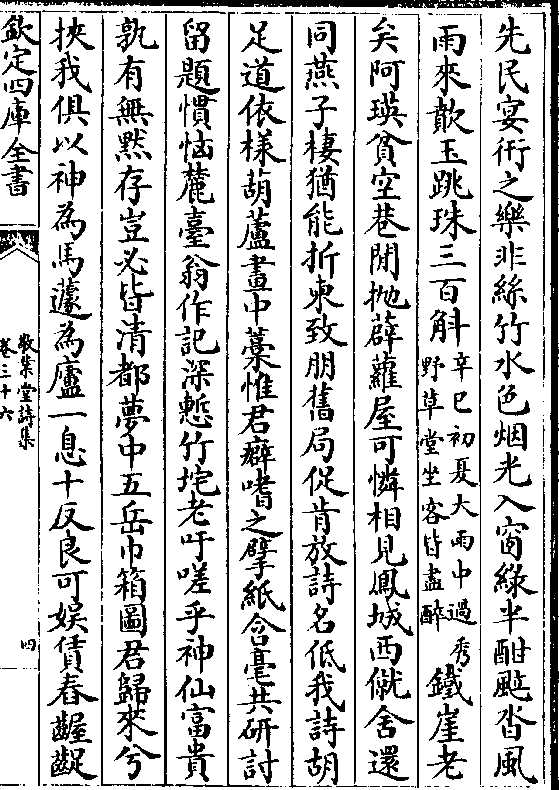 先民宴衎之樂非絲竹水色烟光入窗綠半酣颭沓風
雨來歕玉跳珠三百斛辛巳初夏大雨中過秀野草堂坐客皆盡醉鐵崖老
矣阿瑛貧空巷閒抛薜蘿屋可憐相見鳳城西僦舍還
同燕子棲猶能折柬致朋舊局促肯放詩名低我詩胡
足道依樣葫蘆畫中藁惟君癖嗜之擘紙含毫共研討
留題慣惱麓臺翁作記深慙竹垞老吁嗟乎神仙富貴
孰有無黙存豈必皆清都夢中五岳巾箱圖君歸來兮
挾我俱以神為馬蘧為廬一息十反良可娱儥舂齷齪
欽定四庫全書
敬業堂詩集
卷三十六
四